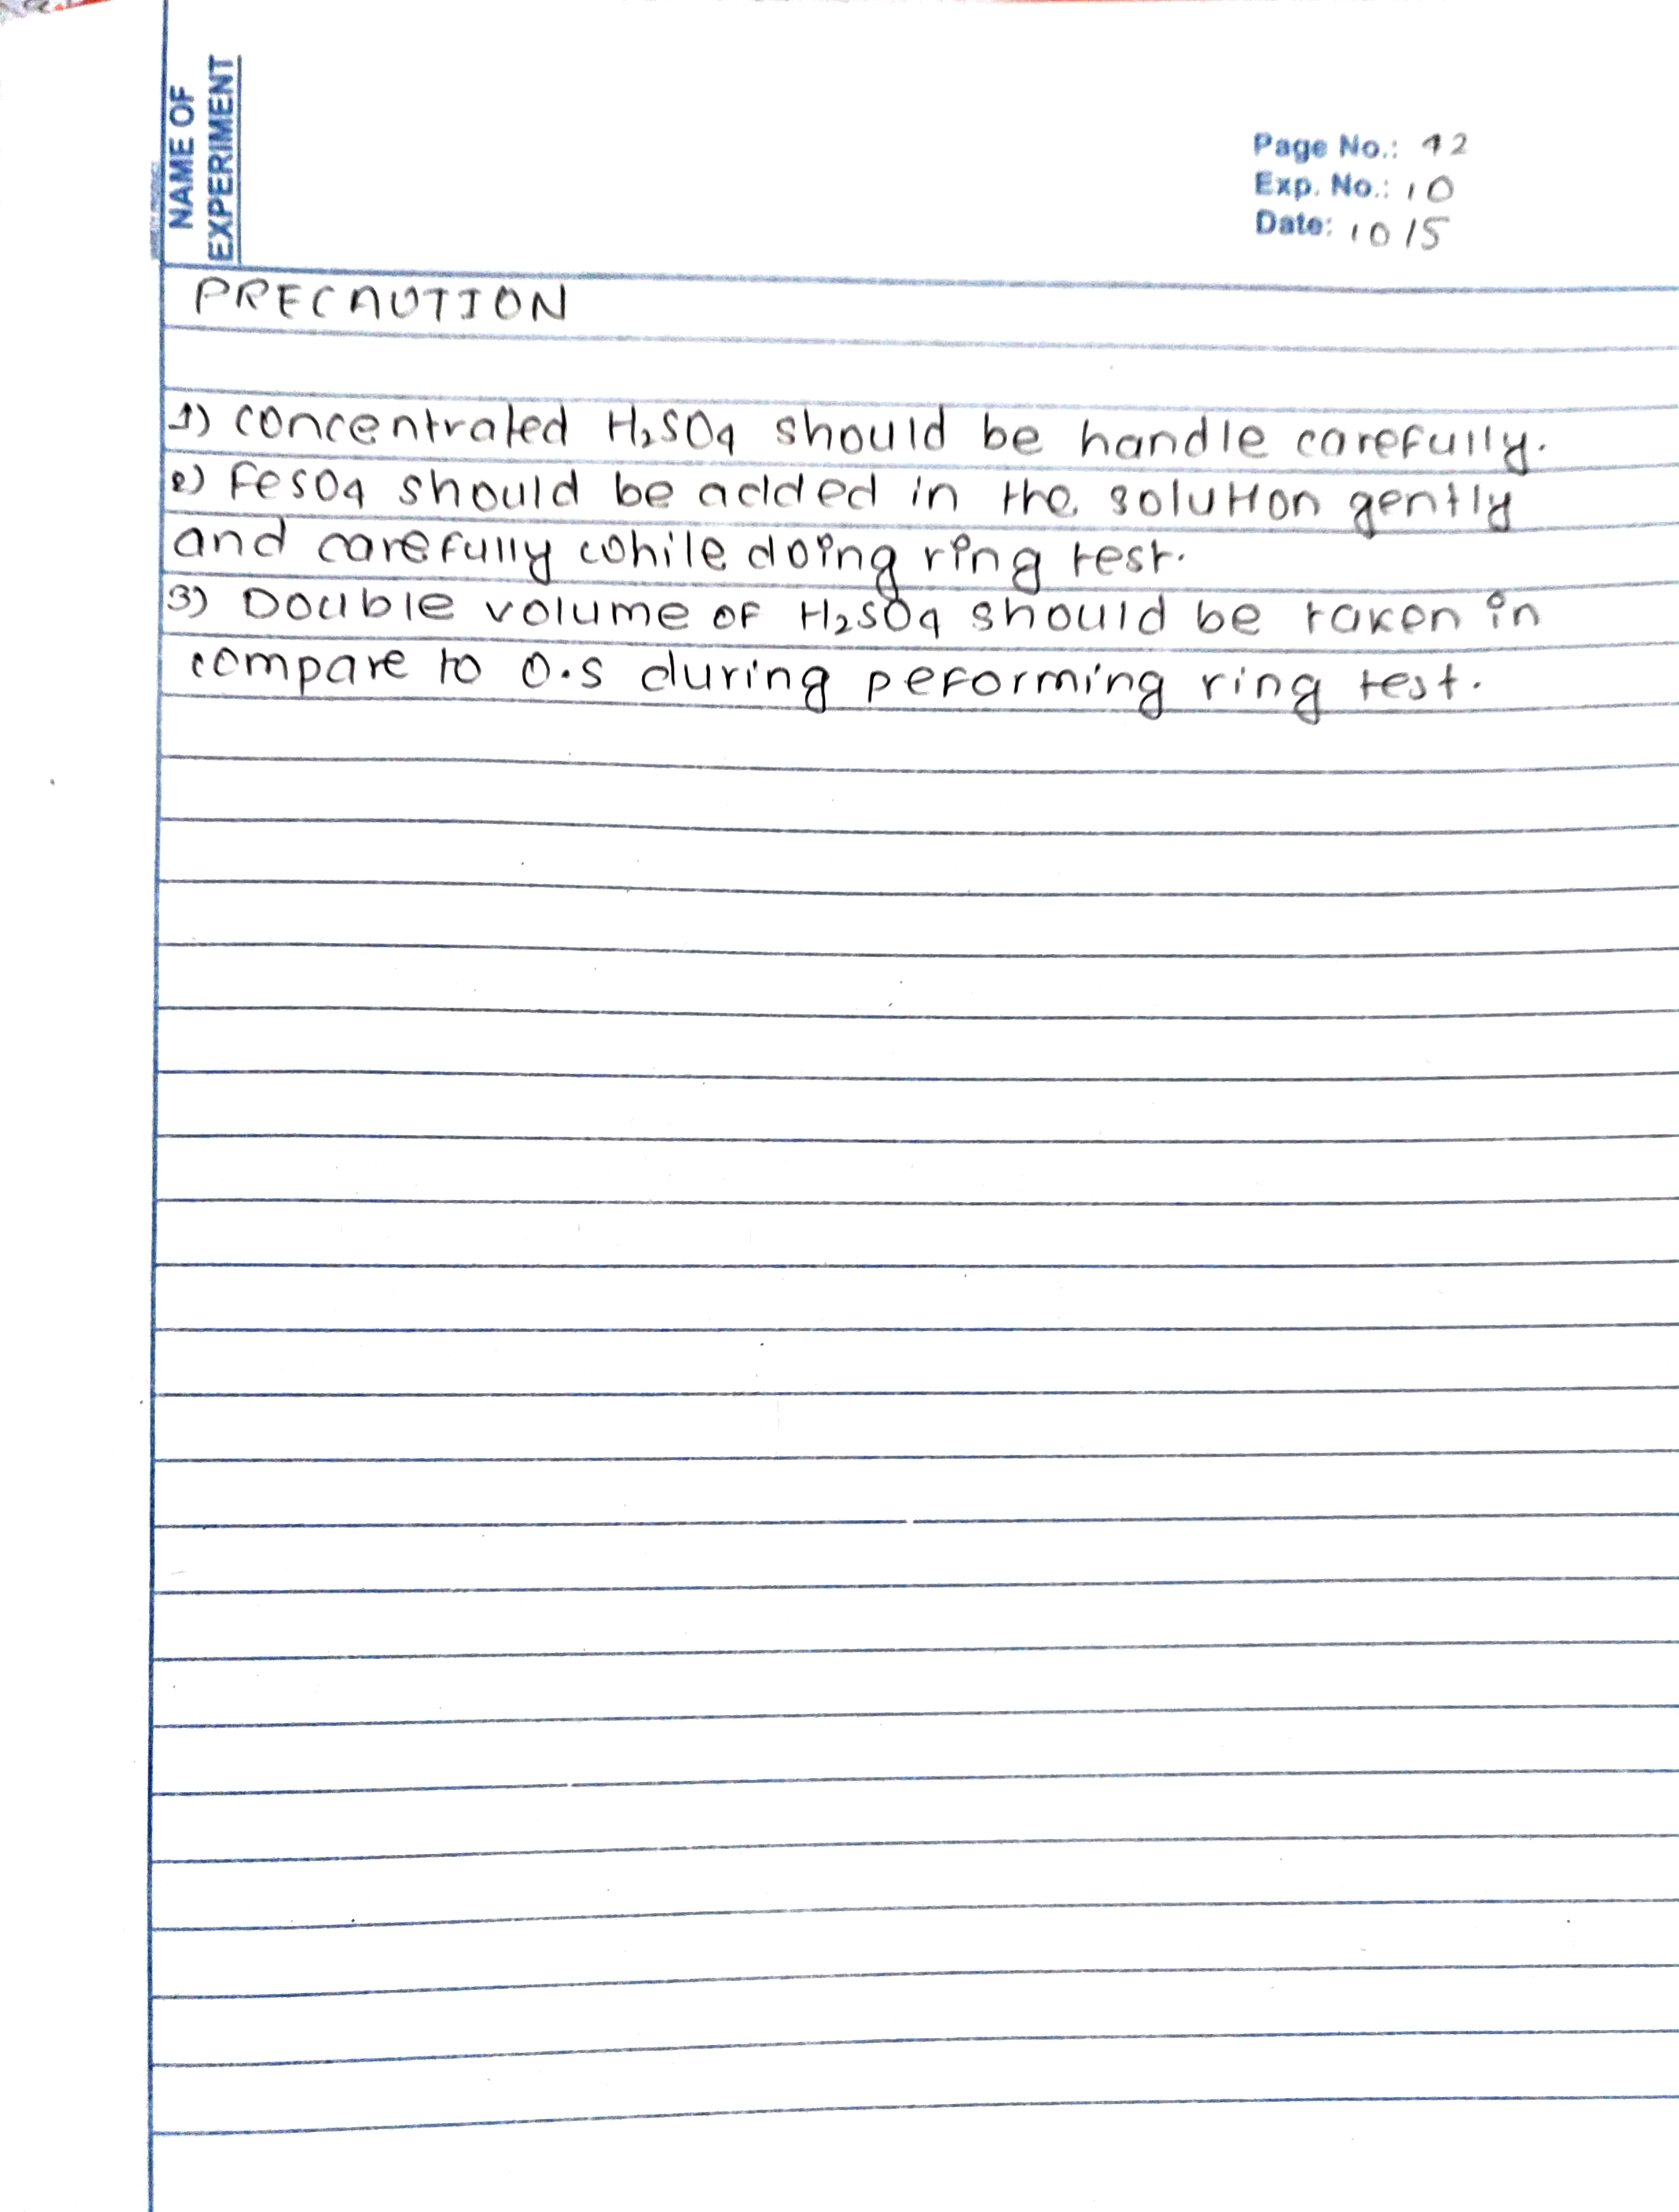 NAME OF
EXPERIMENT
Page No.: 42
Exp. No.: 10
Date: 10/5
PRECAUTION
1) concentrated H₂SO₄ should be handle carefully.
2) FeSO₄ should be added in the solution gently
and carefully while doing ring test.
3) Double volume of H₂SO₄ should be taken in
compare to O.S during peforming ring test.